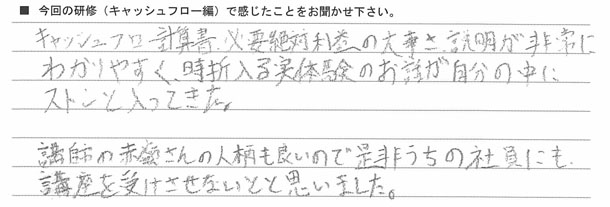 ■ 今回の研修（キャッシュフロー編）で感じたことをお聞かせ下さい。
キャッシュフロー計算書、必要絶対利益の大事さ、説明が非常に
わかりやすく、時折入る実体験のお話が自分の中に
ストンと入ってきた。
講師の赤嶺さんの人柄も良いので是非うちの社員にも
講座を受けさせないとと思いました。